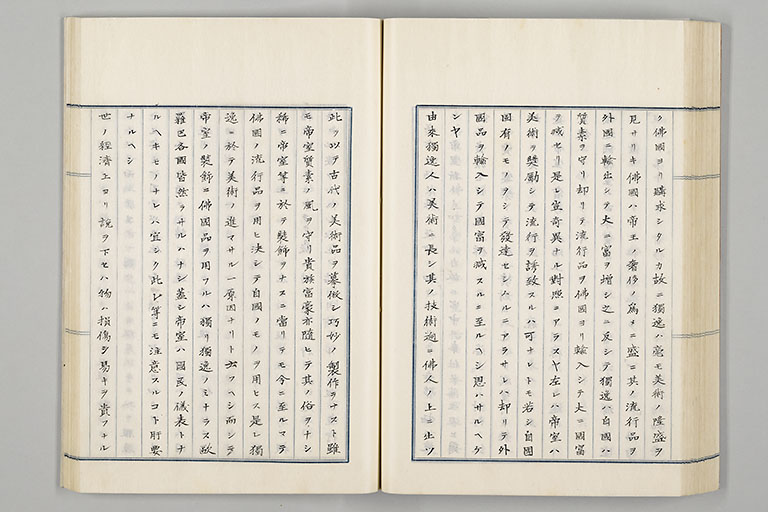 ク佛國ヨリ購求シタルカ故ニ獨逸ハ毫モ美術ノ隆盛ヲ
見サリキ佛國ハ帝王ノ奢侈ノ為メニ盛ニ其ノ流行品ヲ
外國ニ輸出シテ大ニ富ヲ增シ之ニ反シテ獨逸ハ自國ハ
質素ヲ守リ却リテ流行品ヲ佛國ヨリ輸入シテ大ニ國富
ヲ減セリ是レ豈奇異ナル對照ニアラスヤ左レハ帝室ハ
美術ヲ奬勵シテ流行ヲ誘致スルハ可ナレトモ若シ自國
固有ノモノヲシテ發達セシムルニアラサレハ却リテ外
國品ヲ輸入シテ國富ヲ減スルニ至ルヘシ思ハサルヘケ
ンヤ
由來獨逸人ハ美術ニ長シ其ノ技術遙ニ佛人ノ上ニ出ツ
此ヲ以テ古代ノ美術品ヲ摹倣シ巧妙ノ製作ヲナスト雖
モ帝室質素ノ風ヲ守リ貴族富豪亦隨ヒテ其ノ俗ヲナシ
稀ニ帝室等ニ於テ裝飾ヲナスニ當リテモ今ニ至ルマテ
佛國ノ流行品ヲ用ヒ決シテ自國ノモノヲ用ヒス是レ獨
逸ニ於テ美術ノ進マサル一原因ナリト云フヘシ而シテ
帝室ノ裝飾ニ佛國品ヲ用フルハ獨リ獨逸ノミナラス歐
羅巴各國皆然ラサルハナシ蓋シ帝室ハ國民ノ儀表トナ
ルヘキモノナレハ宜シク此レ等ニモ注意スルコト肝要
ナルヘシ
世ノ經濟上ヨリ說ヲ下セハ物ハ損傷シ易キヲ貴フナル